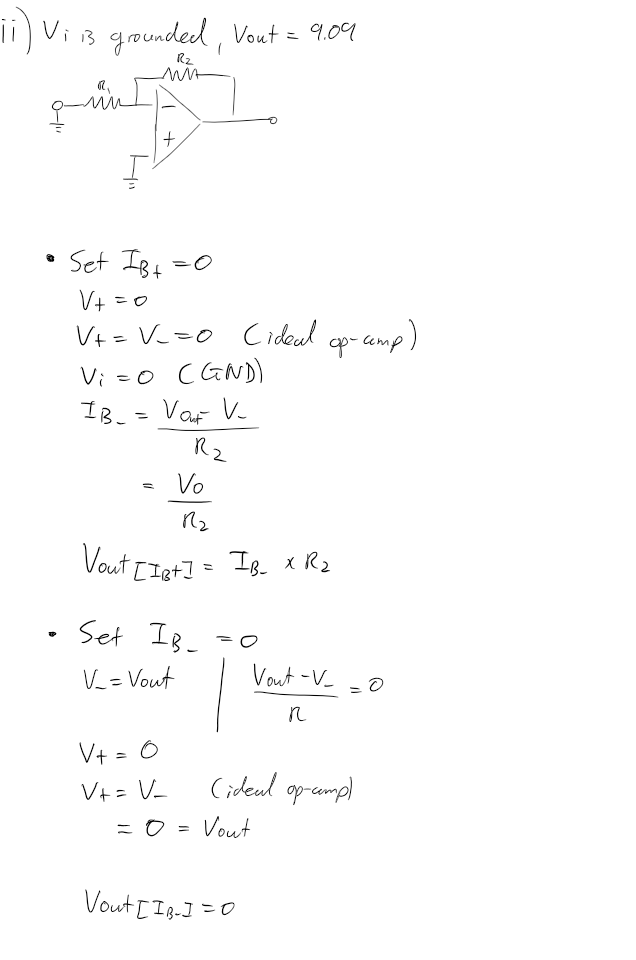 ii) Vi is grounded, Vout = 9.09
R2
R1
−
+
• Set IB+ = 0
V+ = 0
V+ = V- = 0 (ideal op-amp)
Vi = 0 (GND)
IB- = Vout - V-
R2
= Vo
R2
Vout [IB+] = IB- x R2
• Set IB- = 0
V- = Vout | Vout - V- = 0
R
V+ = 0
V+ = V- (ideal op-amp)
= 0 = Vout
Vout [IB-] = 0